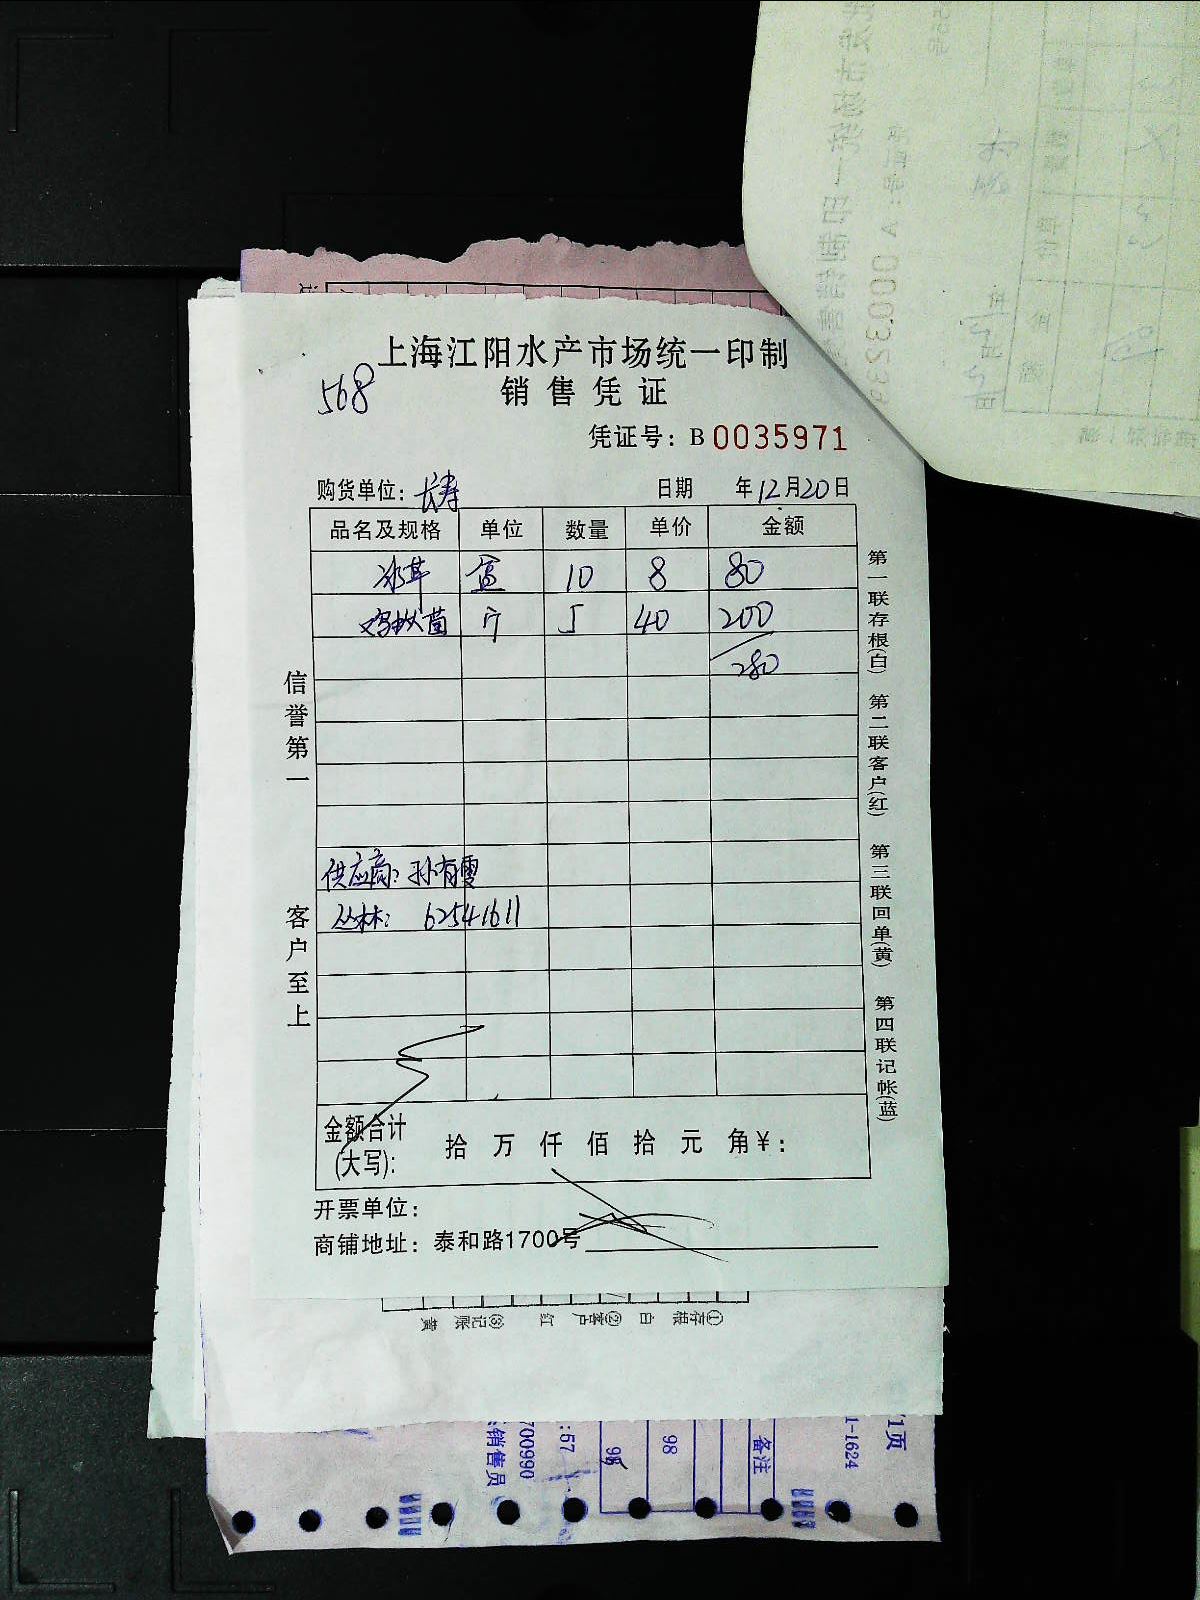 上海江阳水产市场统一印制
568
销售凭证
凭证号：B 0035971
购货单位：长寿 日期 年12月20日
品名及规格 单位 数量 单价 金额
冰草 盒 10 8 80
鸡枞菌 斤 5 40 200
280
信誉第一
客户至上
供应商：孙有雪
丛林：62541611
金额合计
(大写)：
拾 万 仟 佰 拾 元 角￥：
开票单位：
商铺地址：泰和路1700号
第一联存根(白) 第二联客户(红) 第三联回单(黄) 第四联记帐(蓝)
①存根 白 ②客户 红 ③记账 黄
1页
1-1624
备注
98
98
:57
700990
销售员